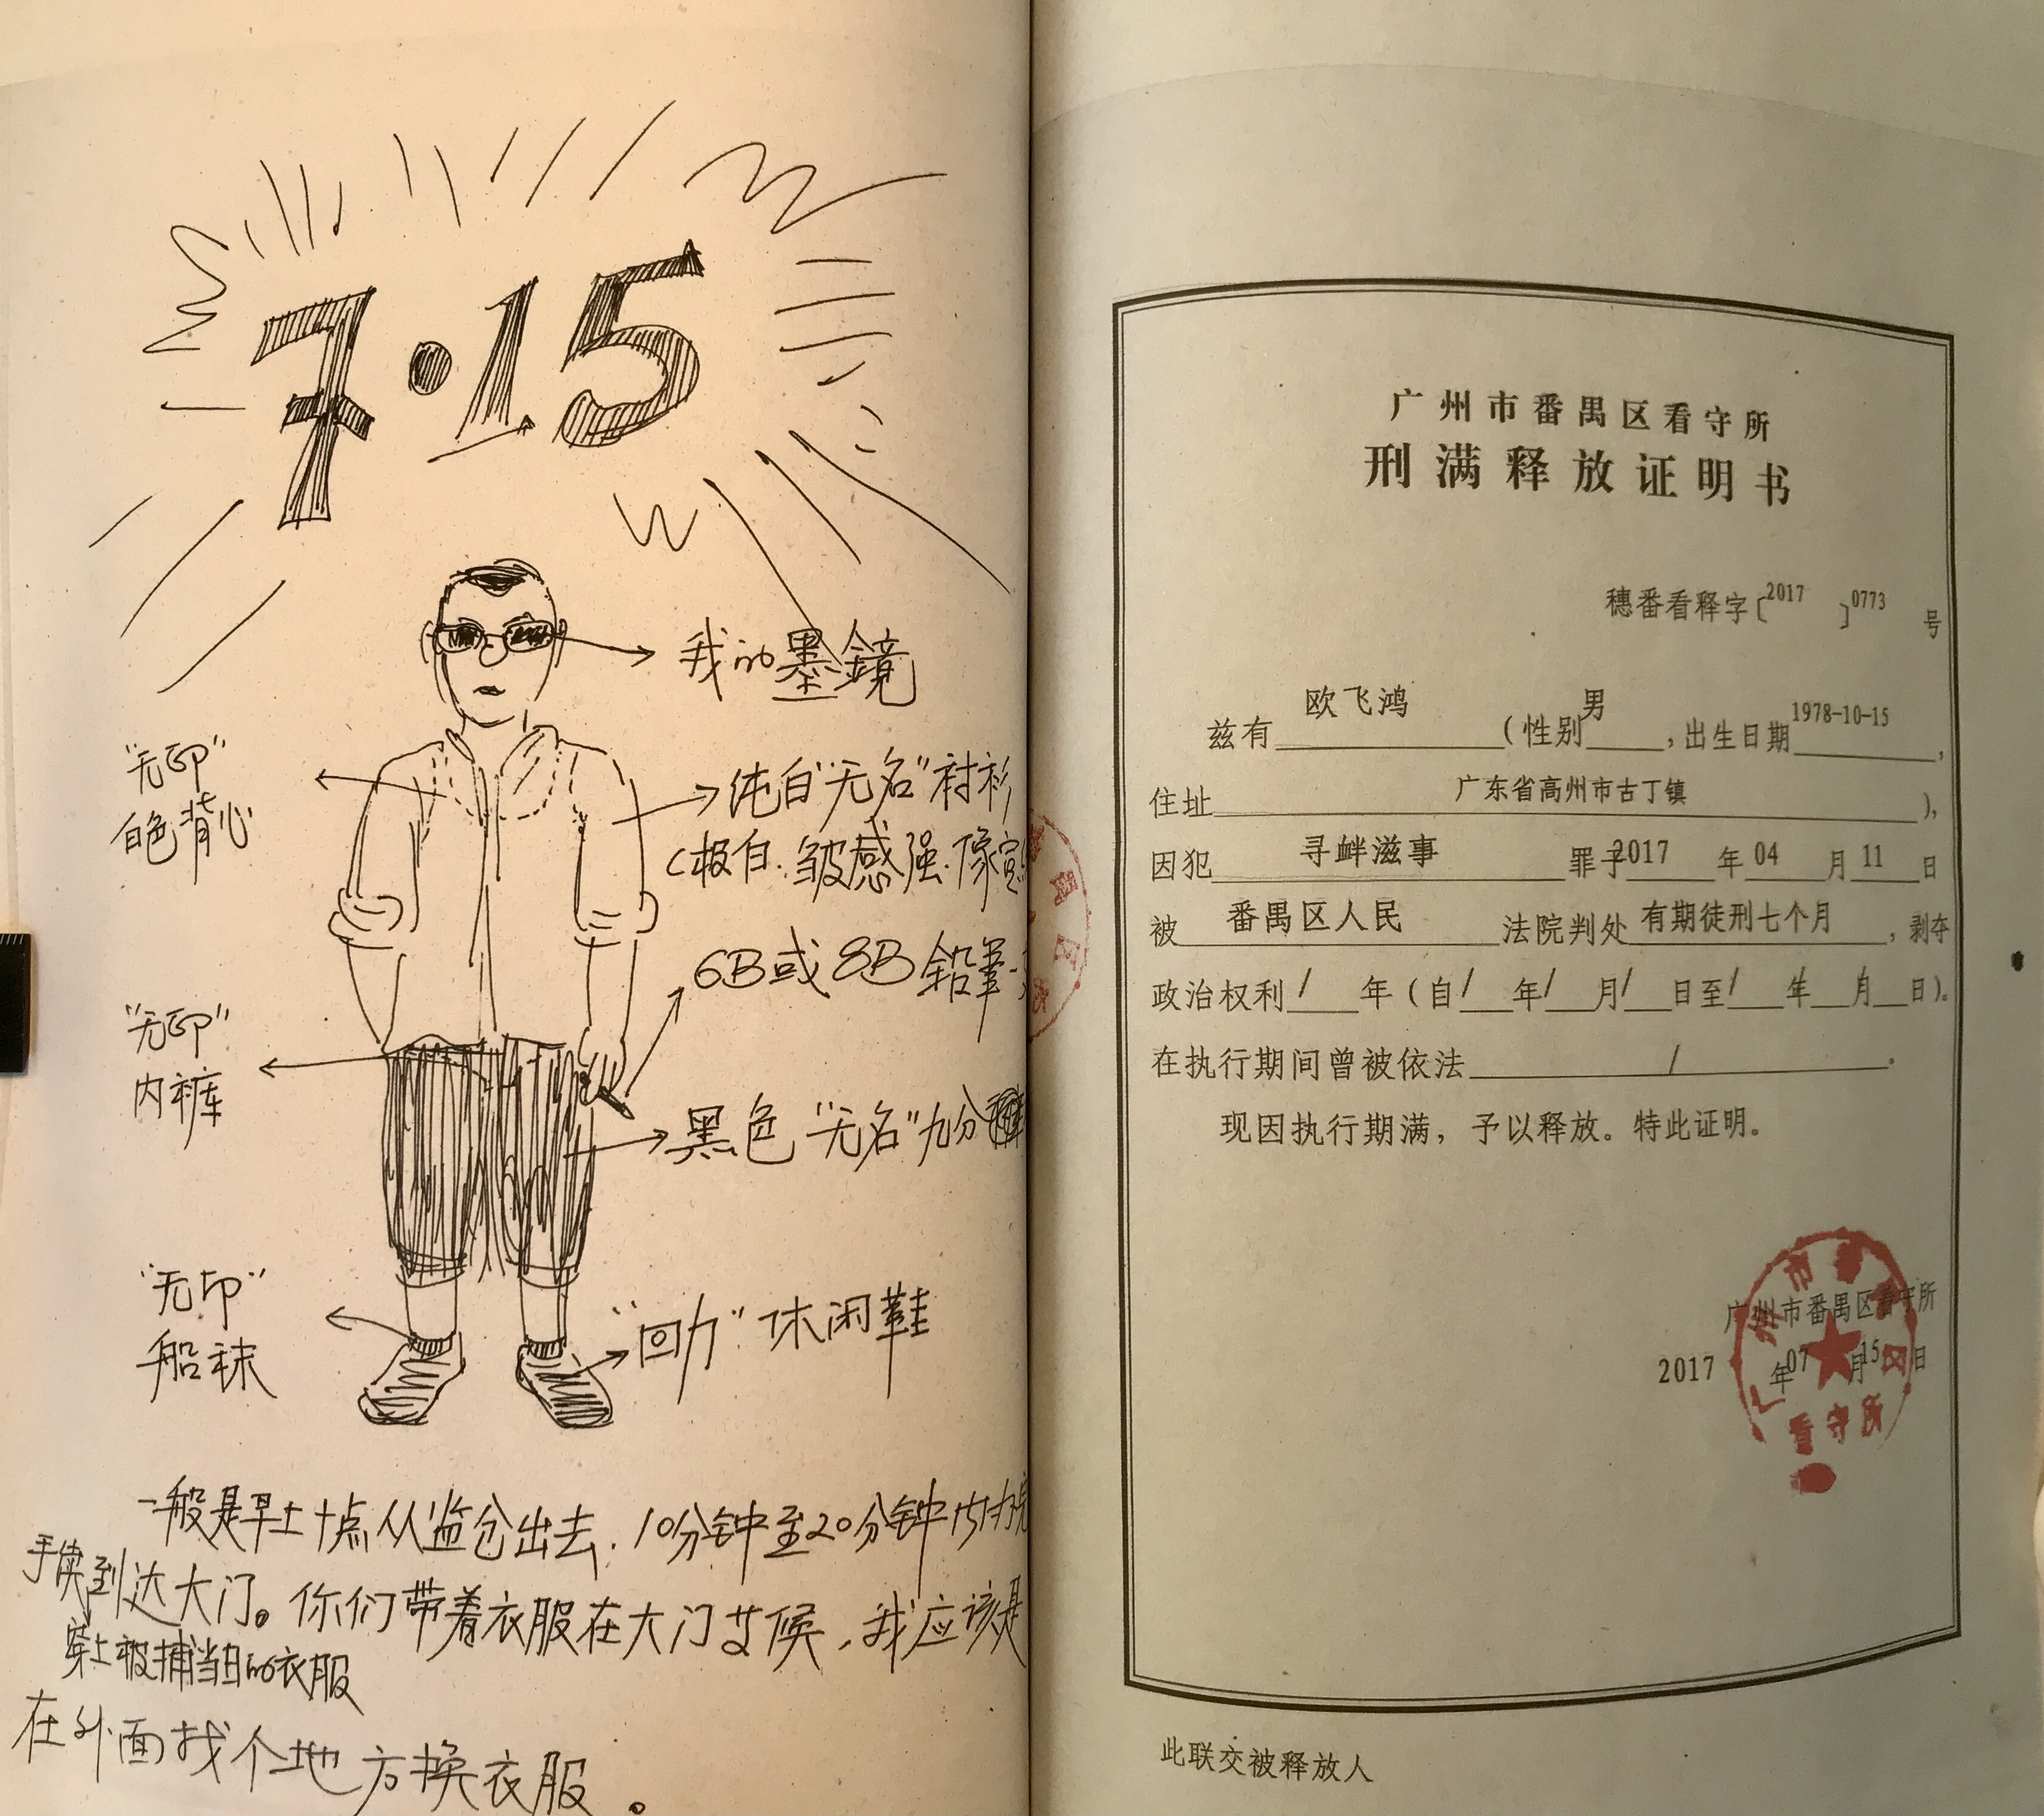 7·15
我的墨鏡
"无印"
白色背心
纯白"无名"衬衫
(极白.皱感强.像宣
6B或8B鉛筆
"无印"
内裤
黑色"无名"九分裤
"无印"
船袜
"回力"休闲鞋
一般是早上十点从监仓出去.10分钟至20分钟内办完
手续到达大门。你们带着衣服在大门等候,我应该是
穿上被捕当日的衣服
在外面找个地方换衣服。
广州市番禺区看守所
刑满释放证明书
穗番看释字〔2017〕0773号
兹有欧飞鸿(性别男,出生日期1978-10-15,
住址广东省高州市古丁镇),
因犯寻衅滋事罪于2017年04月11日
被番禺区人民法院判处有期徒刑七个月,剥夺
政治权利/年(自/年/月/日至/年月日)。
在执行期间曾被依法/.
现因执行期满,予以释放。特此证明。
广州市番禺区看守所
2017年07月15日
广州市番禺区
看守所
此联交被释放人